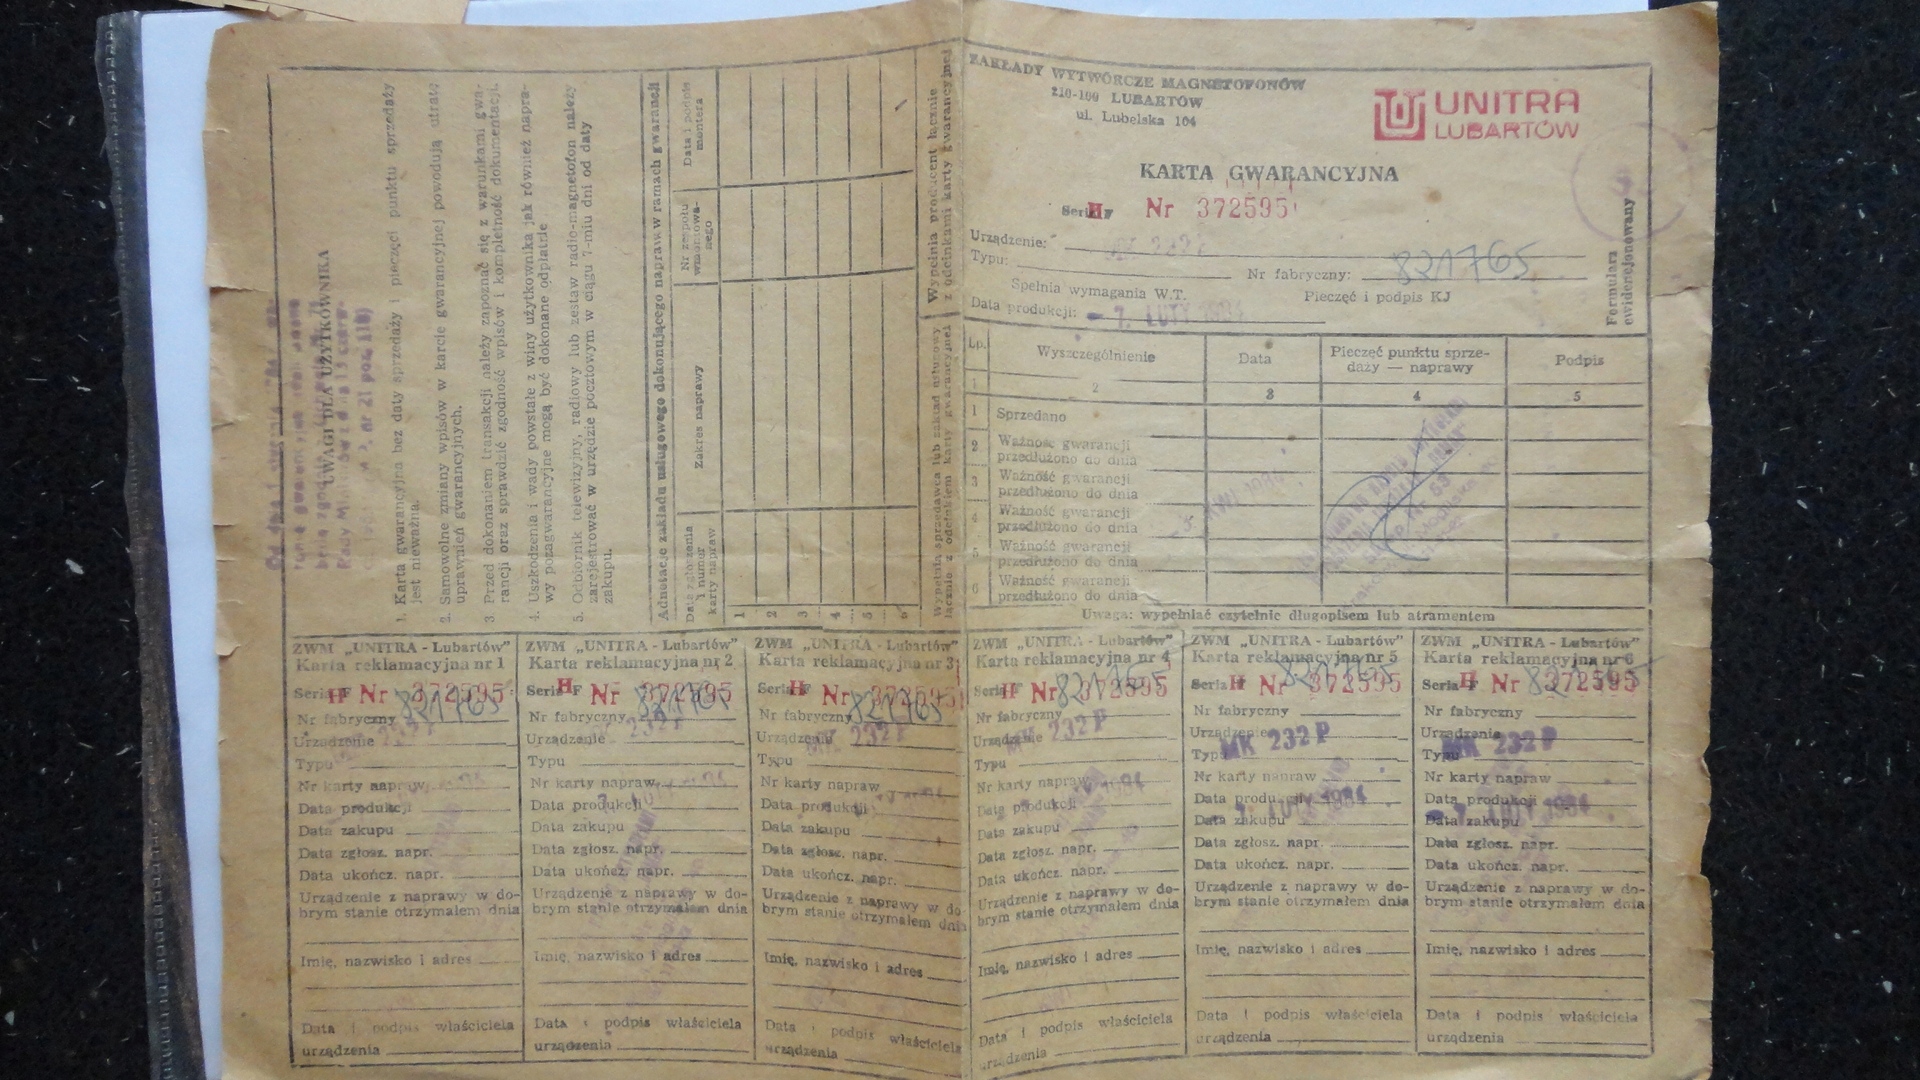 ZAKŁADY WYTWÓRCZE MAGNETOFONÓW
210-100 LUBARTÓW
ul. Lubelska 104
UNITRA
LUBARTÓW
KARTA GWARANCYJNA
Seria H Nr 372595
Urządzenie: MK 232P
Typu: Nr fabryczny: 821765
Spełnia wymagania W.T. Pieczęć i podpis KJ
Data produkcji: - 7. LUTY 1984
Formularz
ewidencjonowany
Lp. Wyszczególnienie Data Pieczęć punktu sprze-
daży — naprawy Podpis
1 2 3 4 5
1 Sprzedano
2 Ważność gwarancji
przedłużono do dnia
3 Ważność gwarancji
przedłużono do dnia
4 Ważność gwarancji
przedłużono do dnia
5 Ważność gwarancji
przedłużono do dnia
6 Ważność gwarancji
przedłużono do dnia
Uwaga: wypełniać czytelnie długopisem lub atramentem
UWAGI DLA UŻYTKOWNIKA
1. Karta gwarancyjna bez daty sprzedaży i pieczęci punktu sprzedaży
jest nieważna.
2. Samowolne zmiany wpisów w karcie gwarancyjnej powodują utratę
uprawnień gwarancyjnych.
3. Przed dokonaniem transakcji należy zapoznać się z warunkami gwa-
rancji oraz sprawdzić zgodność wpisów i kompletność dokumentacji.
4. Uszkodzenia i wady powstałe z winy użytkownika jak również napra-
wy pozagwarancyjne mogą być dokonane odpłatnie
5. Odbiornik telewizyjny, radiowy lub zestaw radio-magnetofon należy
zarejestrować w urzędzie pocztowym w ciągu 7-miu dni od daty
zakupu.
Adnotacje zakładu usługowego dokonującego napraw w ramach gwarancji
Data zgłoszenia
i numer
karty napraw
Zakres naprawy
Nr zespołu
wmontowa-
nego
Data i podpis
montera
1
2
3
4
5
6
Wypełnia sprzedawca lub zakład usługowy
łącznie z odcinkiem karty gwarancyjnej
Wypełnia producent łącznie
z odcinkami karty gwarancyjnej
ZWM „UNITRA - Lubartów”
Karta reklamacyjna nr 1
Seria H Nr 372595
821765
Nr fabryczny
Urządzenie 232P
Typu
Nr karty napraw
Data produkcji
Data zakupu
Data zgłosz. napr.
Data ukończ. napr.
Urządzenie z naprawy w do-
brym stanie otrzymałem dnia
Imię, nazwisko i adres
Data i podpis właściciela
urządzenia
ZWM „UNITRA - Lubartów”
Karta reklamacyjna nr 2
Seria H Nr 372595
821765
Nr fabryczny
Urządzenie 232P
Typu
Nr karty napraw
Data produkcji
Data zakupu
Data zgłosz. napr.
Data ukończ. napr.
Urządzenie z naprawy w do-
brym stanie otrzymałem dnia
Imię, nazwisko i adres
Data i podpis właściciela
urządzenia
ZWM „UNITRA - Lubartów”
Karta reklamacyjna nr 3
Seria H Nr 372595
821765
Nr fabryczny
Urządzenie MK 232P
Typu
Nr karty napraw
Data produkcji
Data zakupu
Data zgłosz. napr.
Data ukończ. napr.
Urządzenie z naprawy w do-
brym stanie otrzymałem dnia
Imię, nazwisko i adres
Data i podpis właściciela
urządzenia
ZWM „UNITRA - Lubartów”
Karta reklamacyjna nr 4
Seria H Nr 372595
821765
Nr fabryczny
Urządzenie MK 232P
Typu
Nr karty napraw
Data produkcji 1984
Data zakupu
Data zgłosz. napr.
Data ukończ. napr.
Urządzenie z naprawy w do-
brym stanie otrzymałem dnia
Imię, nazwisko i adres
Data i podpis właściciela
urządzenia
ZWM „UNITRA - Lubartów”
Karta reklamacyjna nr 5
Seria H Nr 372595
821765
Nr fabryczny
Urządzenie
Typu MK 232P
Nr karty napraw
Data produkcji
Data zakupu 7. LUTY 1984
Data zgłosz. napr.
Data ukończ. napr.
Urządzenie z naprawy w do-
brym stanie otrzymałem dnia
Imię, nazwisko i adres
Data i podpis właściciela
urządzenia
ZWM „UNITRA - Lubartów”
Karta reklamacyjna nr 6
Seria H Nr 372595
821765
Nr fabryczny
Urządzenie
Typu MK 232P
Nr karty napraw
Data produkcji
Data zakupu - 7. LUTY 1984
Data zgłosz. napr.
Data ukończ. napr.
Urządzenie z naprawy w do-
brym stanie otrzymałem dnia
Imię, nazwisko i adres
Data i podpis właściciela
urządzenia